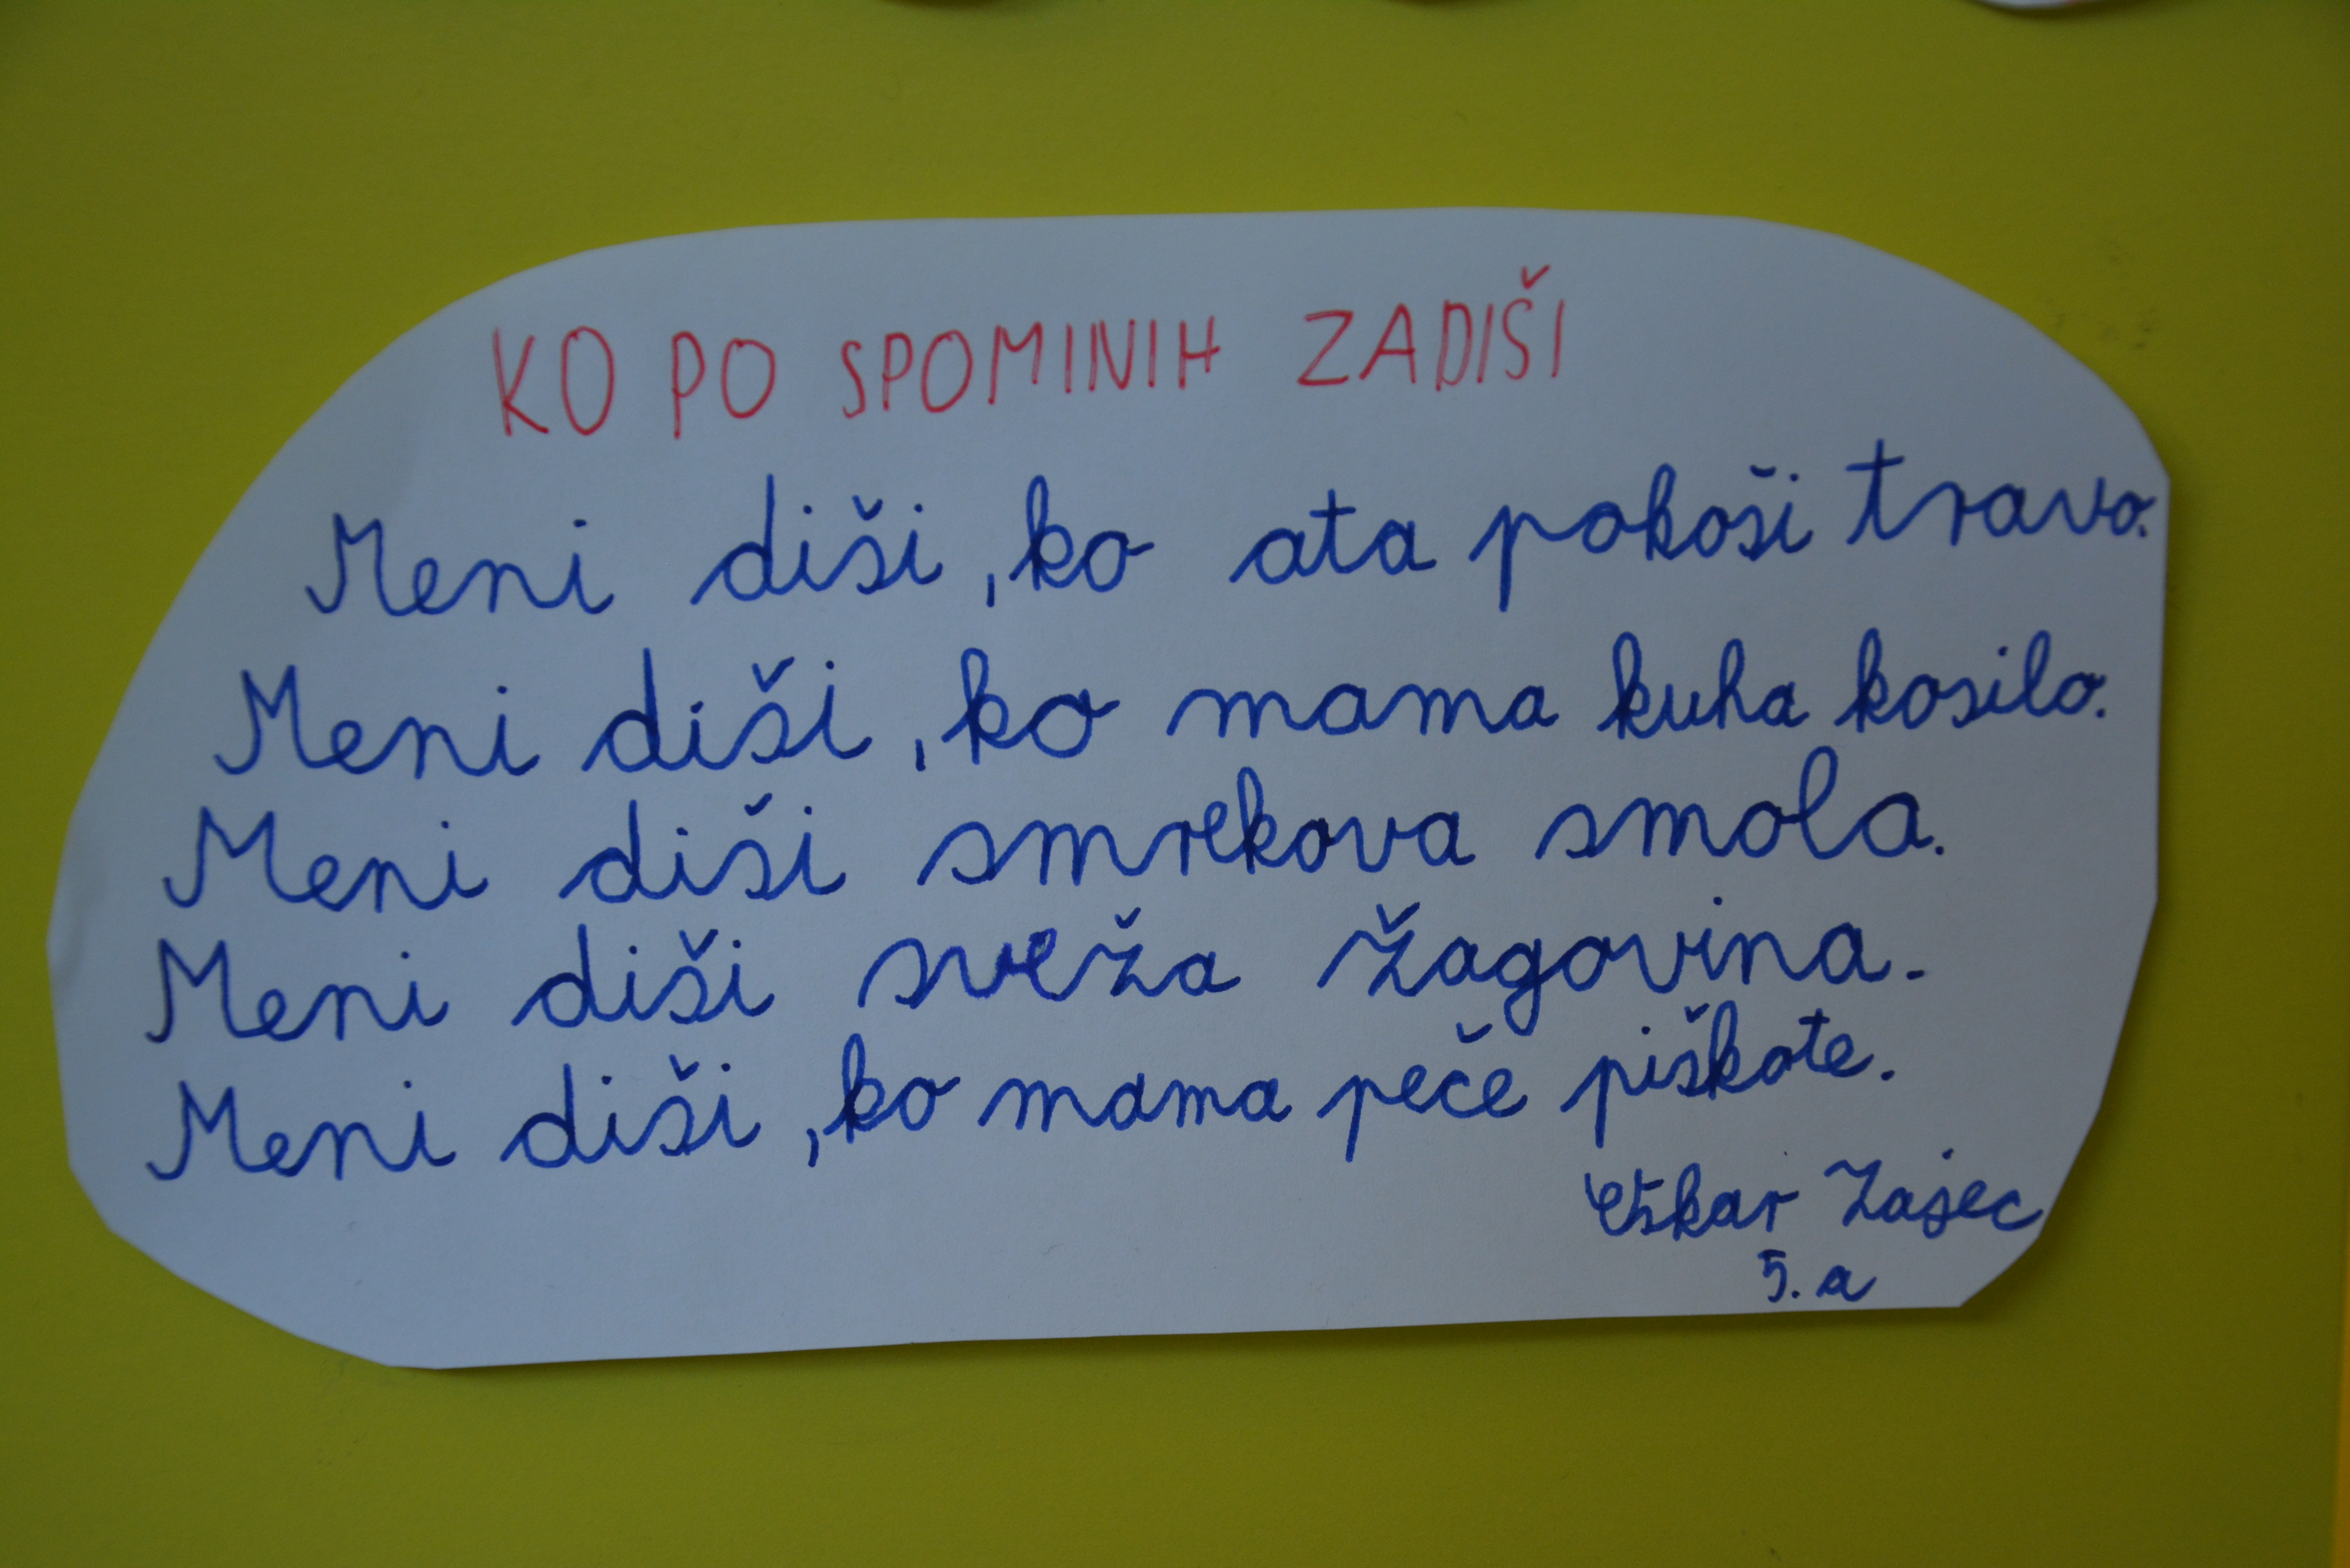 KO PO SPOMINIH ZADIŠI
Meni diši, ko ata pokosi travo.
Meni diši, ko mama kuha kosilo.
Meni diši smrekova smola.
Meni diši sveža žagovina.
Meni diši, ko mama peče piškote.
Oskar Zajec
5. a